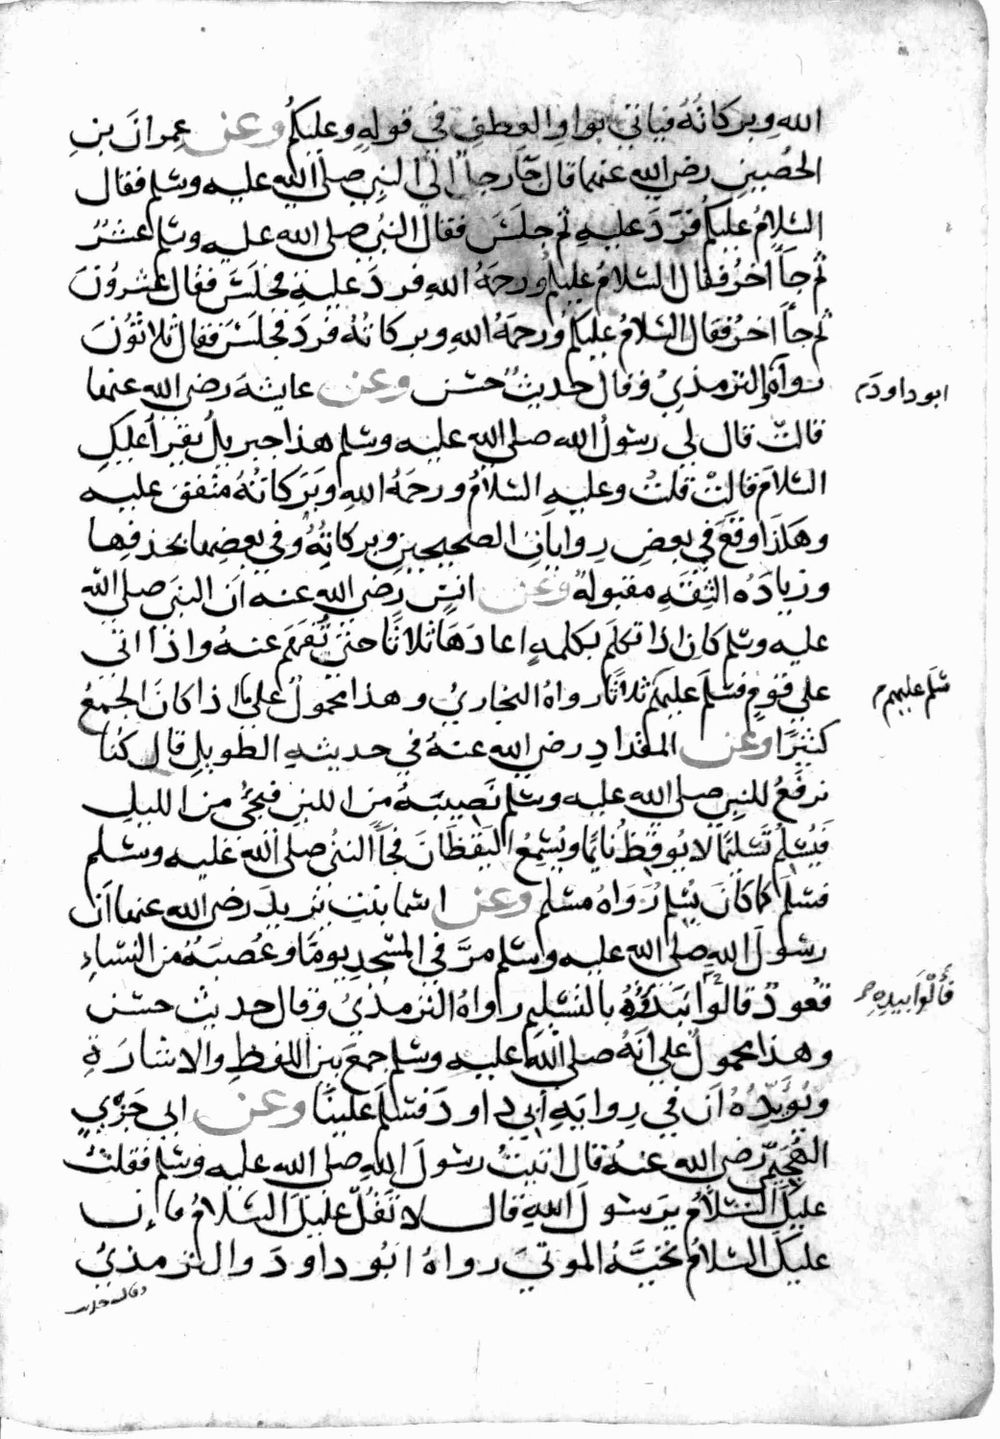 الله وبركاته فياتي بواو العطف في قوله وعليكم وعن عمران بن
الحصين رضي الله عنهما قال جآ رجل الى النبي صلى الله عليه وسلم فقال
السلام عليكم فرد عليه ثم جلس فقال النبي صلى الله عليه وسلم عشر
ثم جآ اخر فقال السلام عليكم ورحمة الله فرد عليه فجلس فقال عشرون
ثم جآ اخر فقال السلام عليكم ورحمة الله وبركاته فرد فجلس فقال ثلاثون
رواه الترمذي وقال حديث حسن وعن عايشة رضي الله عنها
ابو داود م
قالت قال لي رسول الله صلى الله عليه وسلم هذا جبريل يقرأ عليك
السلام قالت قلت وعليه السلام ورحمة الله وبركاته متفق عليه
وهكذا وقع في بعض روايات الصحيحين وبركاته وفي بعضها بحذفها
وزيادة الثقة مقبولة وعن انس رضي الله عنه ان النبي صلى الله
عليه وسلم كان اذا تكلم بكلمة اعادها ثلاثا حتى تفهم عنه واذا اتى
على قوم فسلم عليهم ثلاثا رواه البخاري وهذا محمول على ما اذا كان الجمع
سلم عليهم م
كثيرا وعن المقداد رضي الله عنه في حديثه الطويل قال كنا
نرفع للنبي صلى الله عليه وسلم نصيبه من اللبن فيجئ من الليل
فيسلم تسليما لا يوقظ نايما ويسمع اليقظان فجآ النبي صلى الله عليه وسلم
فسلم كما كان يسلم رواه مسلم وعن اسما بنت يزيد رضي الله عنها ان
رسول الله صلى الله عليه وسلم مر في المسجد يوما وعصبة من النساء
قعود قالوا بيده بالتسليم رواه الترمذي وقال حديث حسن
فألوا بيده م
وهذا محمول على انه صلى الله عليه وسلم جمع بين اللفظ والاشارة
ويؤيده ان في رواية ابي داود فسلم علينا وعن ابي جري
الهجيمي رضي الله عنه قال اتيت رسول الله صلى الله عليه وسلم فقلت
عليك السلام يرسول الله قال لا تقل عليك السلام فان
عليك السلام تحية الموتى رواه ابو داود والترمذي
وقال حديث